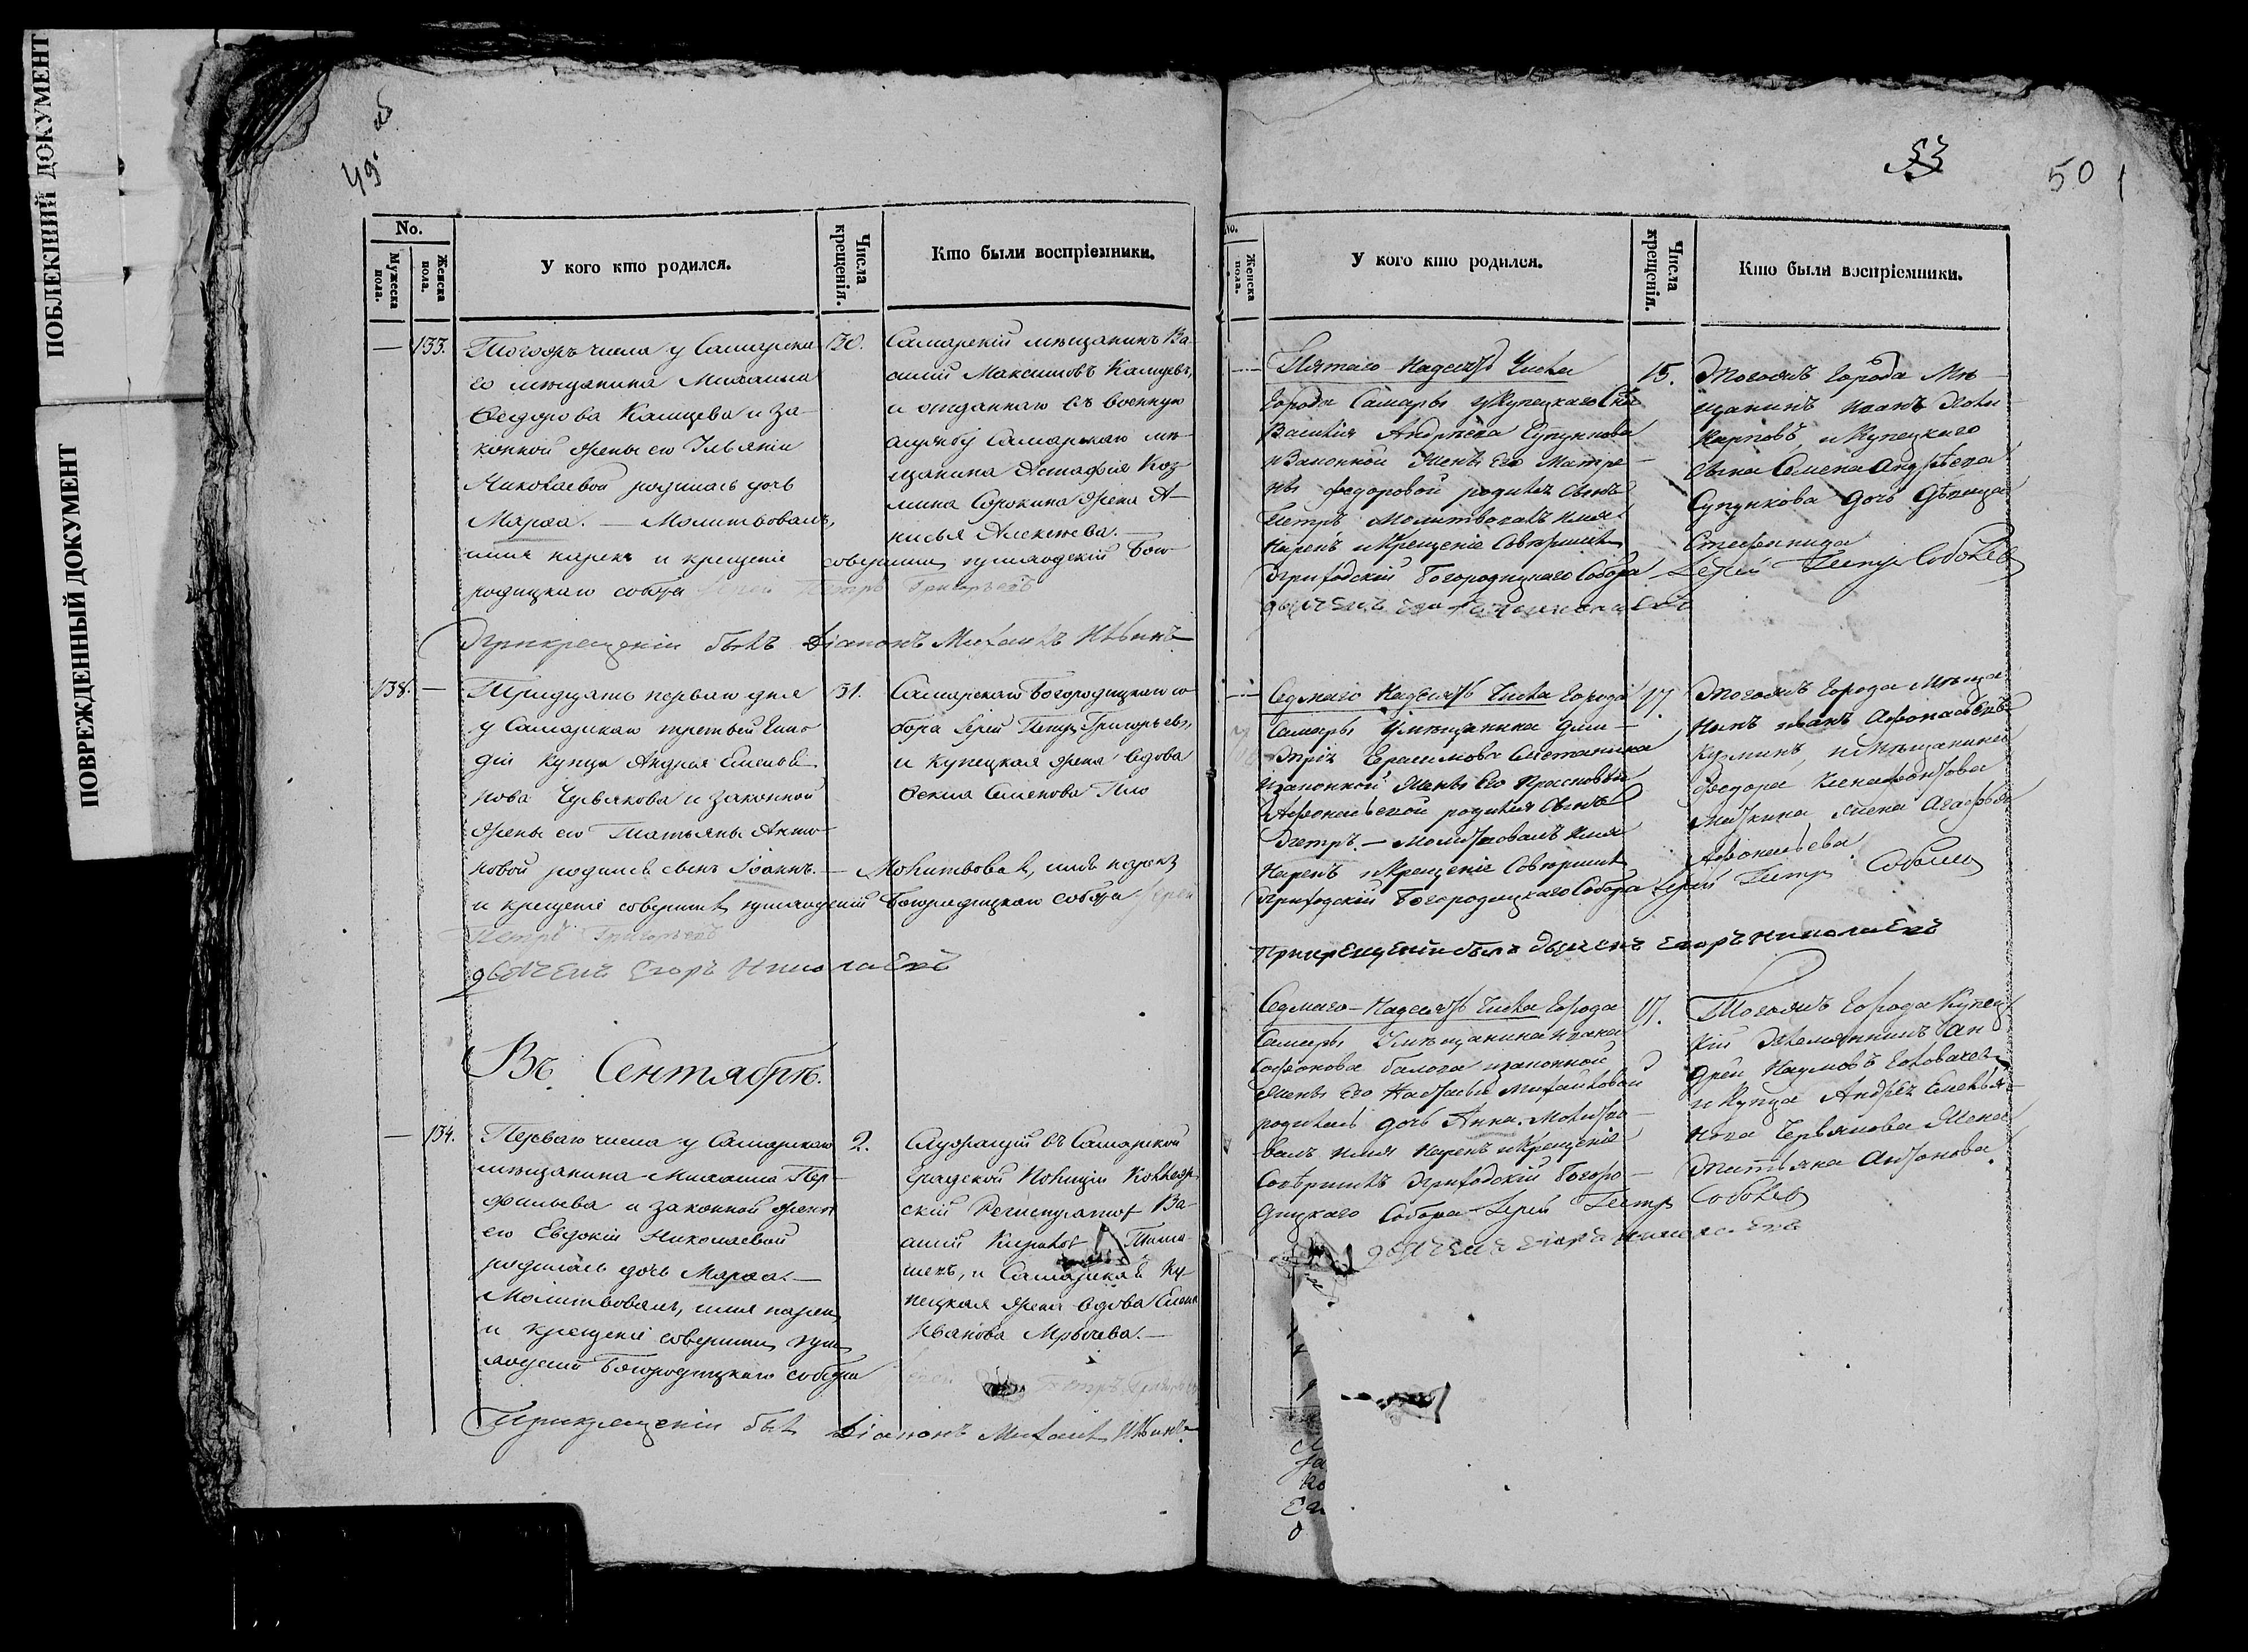 ПОБЛЕКШИЙ ДОКУМЕНТ
ПОВРЕЖДЕННЫЙ ДОКУМЕНТ
49. об
No.
Мужеска пола.
Женска пола.
У кого кто родился.
Числа крещенія.
Кто были воспріемники.
— 133.
Тогожъ числа у Самарска
го мѣщанина Михаила
Федорова Канцева и за-
конной жены его Ульяніи
Николаевой родилась дочь
Марѳа. — Молитвовалъ,
имя нарекъ и крещеніе совершилъ приходскій Бого
родицкаго собора Іерей Петръ Григорьевъ
30.
Самарскій мѣщанинъ Ва-
силій Максимовъ
и отданнаго въ военную
службу Самарскаго мѣ-
щанина Астафія Коз-
мина Сорокина жена А-
нисья Алексѣева. —
При крещеніи былъ Діаконъ Михаилъ Ильинъ
138. —
Тридцать перваго дня
у Самарскаго третьей гиль
діи купца Андрея Емелья
нова Червякова и законной
жены его Татьяны Анто-
новой родился сынъ Іоаннъ. — Молитвовалъ, имя нарекъ
и крещеніе совершилъ приходскій Богородицкаго собора Іерей
Петръ Григорьевъ
31.
Самарскаго Богородицкаго со
бора Іерей Петръ Григорьевъ,
и купецкая жена вдова
Ѳекла Семенова
дьячекъ Егоръ Николаевъ
Въ Сентябрѣ.
— 134.
Перваго числа у Самарскаго
мѣщанина Михаила Пер-
фильева и законной жены
его Евдокіи Николаевой
родилась дочь Марѳа. —
Молитвовалъ, имя нарекъ
и крещеніе совершилъ при
ходскій Богородицкаго собора
2.
Служащій въ Самарской
градской Полиціи Коллеж
скій Регистраторъ Ва-
силій
и Самарская Ку-
пецкая жена вдова Елена
Иванова —
Петръ Григорьевъ
При крещеніи былъ Діаконъ Михаилъ Ильинъ
53
50
No.
Женска пола.
У кого кто родился.
Числа крещенія.
Кто были воспріемники.
Пятаго надесять Числа
города Самары у Купецкаго Сына
Василія Андрѣева Супункова
и Законной Жены Его Матре-
ны Федоровой родился Сынъ
Петръ Молитвовалъ имя
Нарекъ и Крещеніе Совершилъ
Приходскій Богородицкаго Собора Іерей Петръ Соболев
15.
Тогожъ Города Мѣ-
щанинъ Иванъ
Карповъ и Купецкаго
сына Семена Андрѣева
Супункова дочь дѣвица
Стефанида
Седмаго Надесять Числа города
Самары у мѣщанина Дми-
трія Герасимова Сметанина
и законной Жены Его
Афонасьевой родился Сынъ
Петръ. — Молитвовалъ Имя
Нарекъ и Крещеніе Совершилъ
Приходскій Богородицкаго Собора Іерей Петръ Соболев
17.
Тогожъ Города Мѣща
нинъ Иванъ Афонасьевъ
Кузминъ, и мѣщанина
Федора
жена Агафья
Афонасьева
При крещеніи былъ дьячекъ Егоръ Николаевъ
Седмаго-Надесять Числа Города
Самары у мѣщанина Ивана
Софонова и законной
Жены Его Настасьи Михайловой
родилась дочь Анна. Молитво-
валъ имя Нарекъ и Крещеніе
Совершилъ Приходскій Богоро-
дицкаго Собора Іерей Петръ Соболев
17.
Тогожъ Города Купец
кій Племянникъ Ан
дрей Наумовъ
и Купца Андрея Емелья-
нова Червякова Жена
Татьяна Антонова.
дьячекъ Егоръ Николаевъ